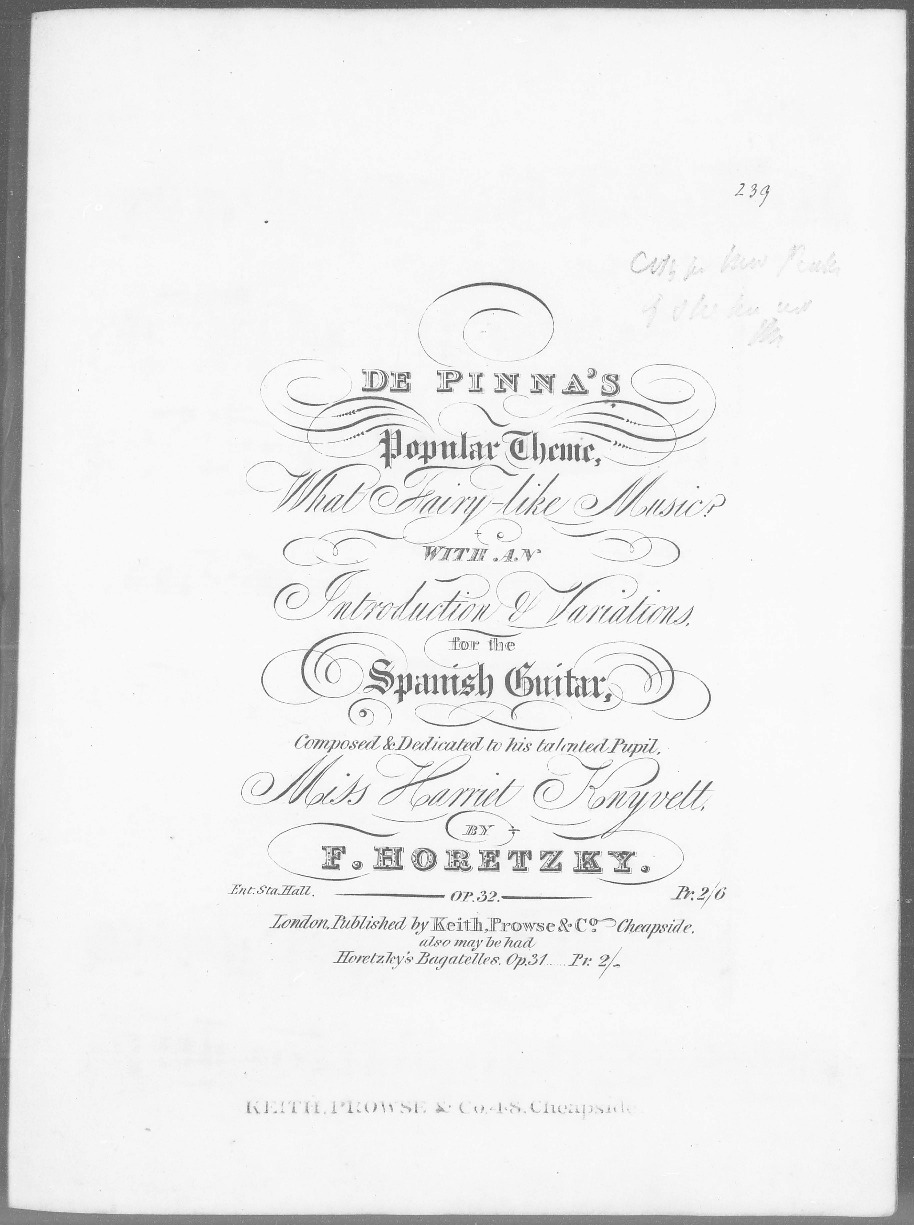 239
DE PINNA'S
Popular Theme,
What Fairy-like Music?
WITH AN
Introduction & Variations,
for the
Spanish Guitar,
Composed & Dedicated to his talented Pupil,
Miss Harriet Knyvett,
BY
F. HORETZKY.
Ent. Sta. Hall. OP. 32. Pr. 2/6
London, Published by Keith, Prowse & Co. Cheapside.
also may be had
Horetzky's Bagatelles. Op. 31.... Pr. 2/-
KEITH, PROWSE & Co. 48. Cheapside